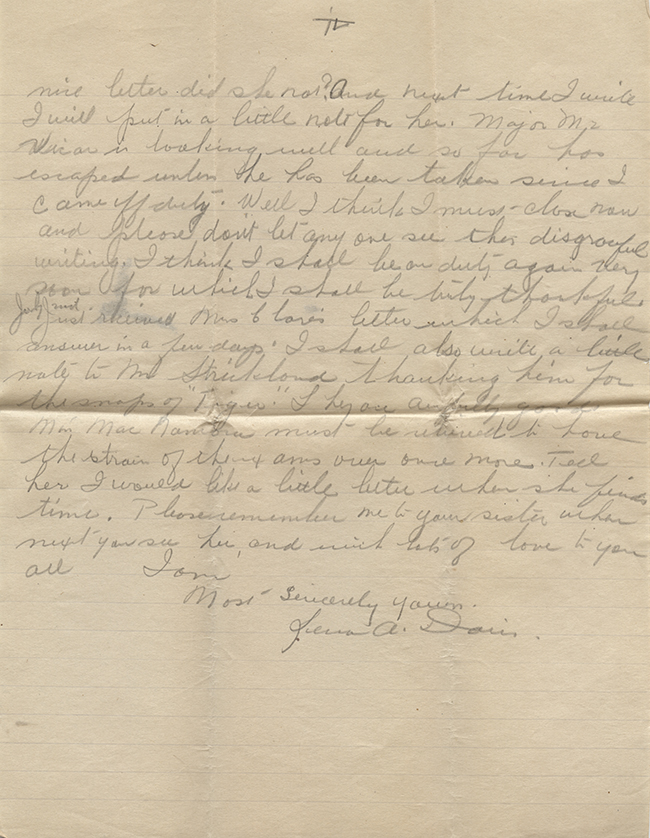 nice letter did she not? And next time I write
I will put in a little note for her. Major Mc
Vicar is looking well and so far has
escaped unless he has been taken since I
came off duty. Well I think I must close now
and please don't let any one see this disgraceful
writing. I think I shall be on duty again very
soon for which I shall be truly thankful.
Just received Mrs letter which I shall
answer in a few days. I shall also write a little
note to Mr Strickland thanking him for
the snaps of "Tiger." They are awfully good
Mrs Mac Namara must be relieved to have
the strain of the exams over once more. Tell
her I would like a little letter when she finds
time. Please remember me to your sister when
next you see her, and with lots of love to you
all I am
Most Sincerely yours.
A. Davis.